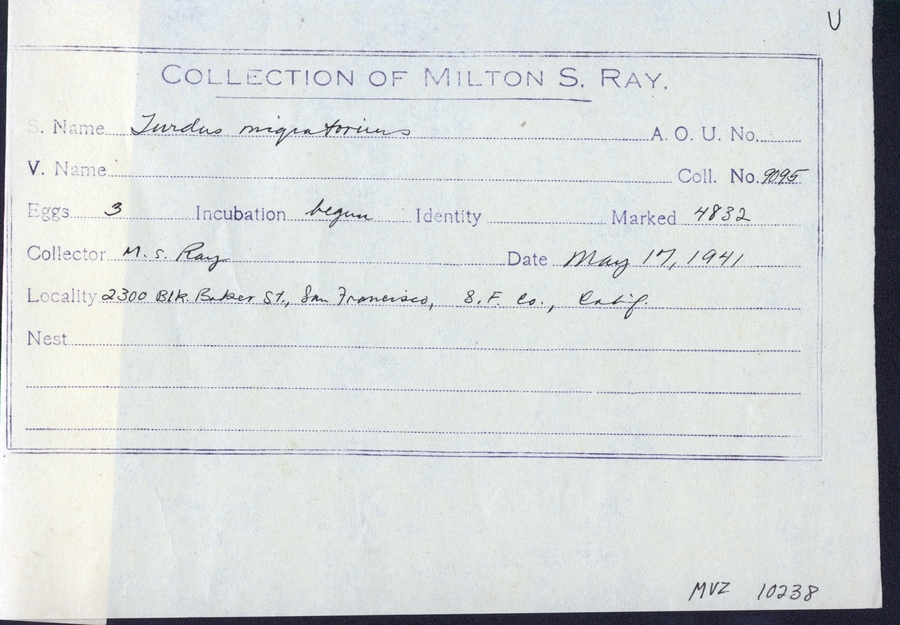 U
COLLECTION OF MILTON S. RAY.
S. Name Turdus migratorius A. O. U. No.
V. Name Coll. No. 9095
Eggs 3 Incubation begun Identity Marked 4832
Collector M. S. Ray Date May 17, 1941
Locality 2300 Blk. Baker St., San Francisco, S.F. Co., Calif.
Nest
MVZ 10238